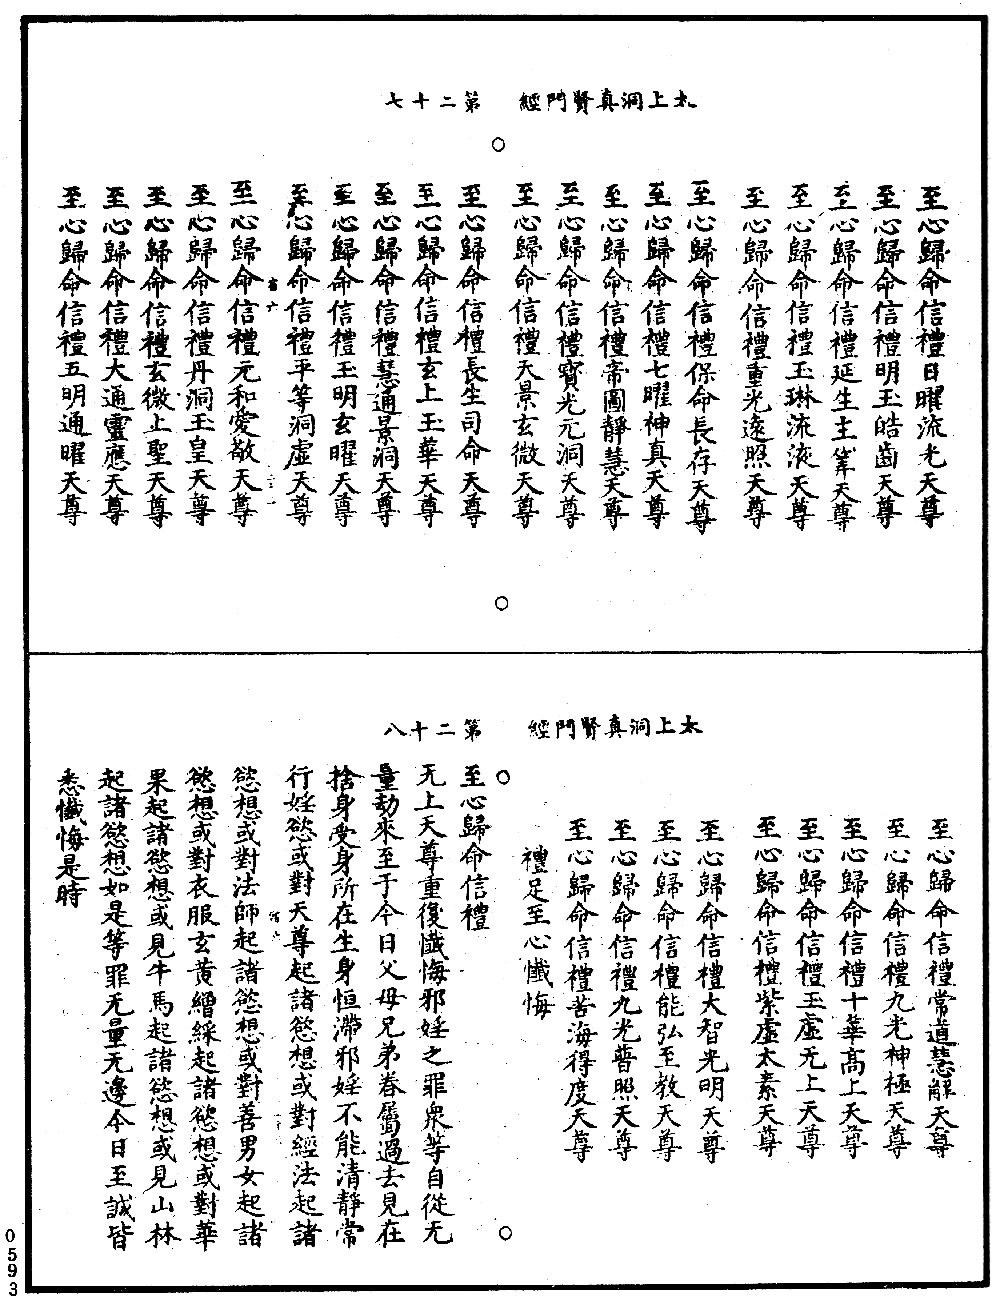 太上洞真賢門經　第二十七
至心歸命信禮日曜流光天尊
至心歸命信禮明玉皓齒天尊
至心歸命信禮延生主筭天尊
至心歸命信禮玉琳流液天尊
至心歸命信禮重光遠照天尊
至心歸命信禮保命長存天尊
至心歸命信禮七曜神真天尊
至心歸命信禮帝圖靜慧天尊
至心歸命信禮寶光元洞天尊
至心歸命信禮天景玄微天尊
至心歸命信禮長生司命天尊
至心歸命信禮玄上玉華天尊
至心歸命信禮慧通景洞天尊
至心歸命信禮玉明玄曜天尊
至心歸命信禮平等洞虛天尊
至心歸命信禮元和愛敬天尊
至心歸命信禮丹洞玉皇天尊
至心歸命信禮玄微上聖天尊
至心歸命信禮大通靈應天尊
至心歸命信禮五明通曜天尊
太上洞真賢門經　第二十八
至心歸命信禮常道慧解天尊
至心歸命信禮九光神極天尊
至心歸命信禮十華高上天尊
至心歸命信禮玉虛无上天尊
至心歸命信禮紫虛太素天尊
至心歸命信禮大智光明天尊
至心歸命信禮能弘至教天尊
至心歸命信禮九光普照天尊
至心歸命信禮苦海得度天尊
禮足至心懺悔
至心歸命信禮
无上天尊重復懺悔邪婬之罪衆等自從无
量劫來至于今日父母兄弟眷屬過去見在
捨身受身所在生身恒滯邪婬不能清靜常
行婬慾或對天尊起諸慾想或對經法起諸
慾想或對法師起諸慾想或對善男女起諸
慾想或對衣服玄黃繒綵起諸慾想或對華
果起諸慾想或見牛馬起諸慾想或見山林
起諸慾想如是等罪无量无邊今日至誠皆
悉懺悔是時
0593